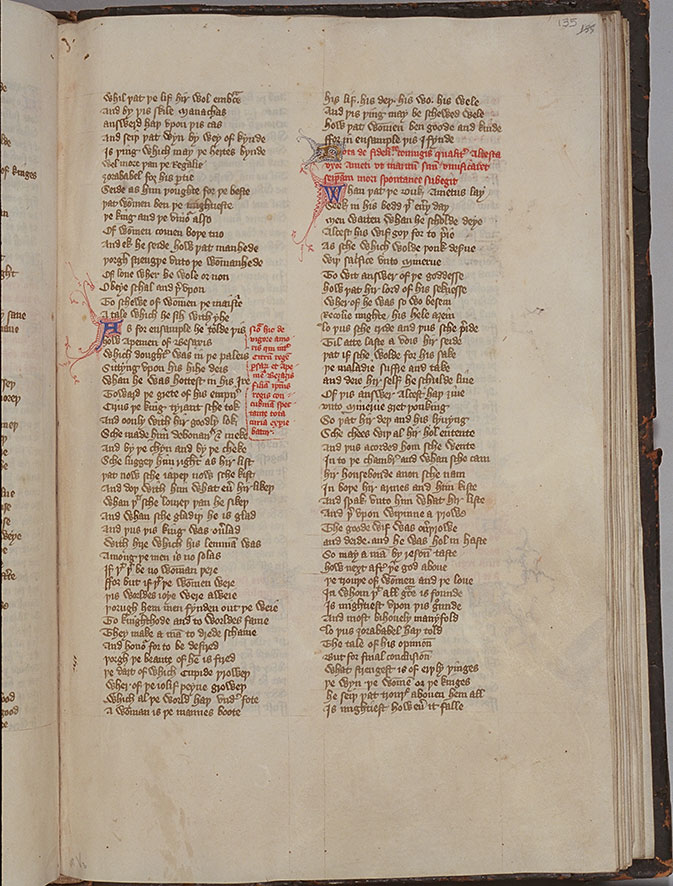 135
135
Whil þat þe lif hir wol embrace
And by þis skile Manachas
Answerd haþ vpon þis cas
And seiþ þat wyn by wey of kynde
Is þing which may þe hertes bynde
Wel more þan þe regalie
Zorababel for his ptie
Seide as him þoughte for þe beste
þat women ben þe mightieste
þe king and þe vinour also
Of women comen boþe tuo
And ek he seide how þat manhede
þorgh strengþe vnto þe wommanhede
Of loue wher he wole or non
Obeie schal and þervpon
To schewe of women þe maistrie
A tale which he sih with yhe
As for ensample he tolde þis
How Apemen of Besazis
Which doughter was in þe paleis
Sitting vpon his hihe deis
Whan he was hottest in his Ire
Toward þe grete of his empire
Cirus þe king tirant sche tok
And oonly with hir goodly lok
Sche made him debonaire & meke
And by þe chyn and by þe cheke
Sche luggeþ him right as hir list
þat now sche iapeþ now sche kist
And doþ with him what euer hir likeþ
Whan þat sche loureþ þan he sikeþ
And whan sche gladeþ he is glad
And þus þis king was ouerlad
With hire which his lemman was
Among þe men is no solas
If þer þer be no womman þere
ffor but if þat þe women were
þis worldes ioye were aweie
þorugh hem men fynden out þe weie
To knighthode and to worldes fame
They make a man to drede schame
And honour for to be desired
þorgh þe beaute of he is fired
þe dart of which Cupide þrowes
Wher of þe iolif peyne growes
Which al þe world haþ vnder fote
A womman is þe mannes boote
Nota hic de
vigore amo
ris qui inter
Cirum regem
Persarum et Ape
men Besazis
filiam ipsius
regis con
cubinam spec
tante tota
curia exper
iebatur
His lif his deþ his wo his wele
And þis þing may be schewed wele
How þat women ben goode and kinde
ffor in ensample þis I fynde
Nota de fidelitate coniugis qualiter Alcesta
vxor Ameti vt maritum suum viuificaret
seipsam mori spontanee subegit
Whan þat þe duk Ametus lay
Seek in his bedd þat euery day
Men waiten whan he scholde deye
Alceste his wif goþ for to preie
As sche which wolde þonk deserue
Wiþ sacrifice vnto Minerue
To wit answer of þe goddesse
How þat hir lord of his seknesse
Wher of he was so wo besein
Recouere mighte his hele aȝein
Lo þus sche cride and þus sche preide
Til atte laste a vois hir seide
þat if sche wolde for his sake
þe maladie suffre and take
And deie hir self he schulde liue
Of þis answer Alceste haþ ȝiue
Vnto Minerue gret þonking
So þat hir deþ and his liuyng
Sche chees wiþ al hir hol entente
And þus acorded hom sche wente
In to þe chambre and whan sche cam
Hir housebonde anon sche nam
In boþe hir armes and him kiste
And spak vnto him what hir liste
And þer vpon wiþinne a þrowe
The goode wif was ouerþrowe
And deide and he was hol in haste
So may a man by reson taste
How next after þe god aboue
þe trouþe of women and þe loue
In whom þat all grace is founde
Is mightiest vpon þis grounde
And most bihouely manyfold
Lo þus Zorababel haþ told
The tale of his opinion
But for final conclusion
What strengest is of erþly þinges
þe wyn þe women or þe kinges
He seiþ þat trouþe abouen hem all
Is mightiest how euer it falle